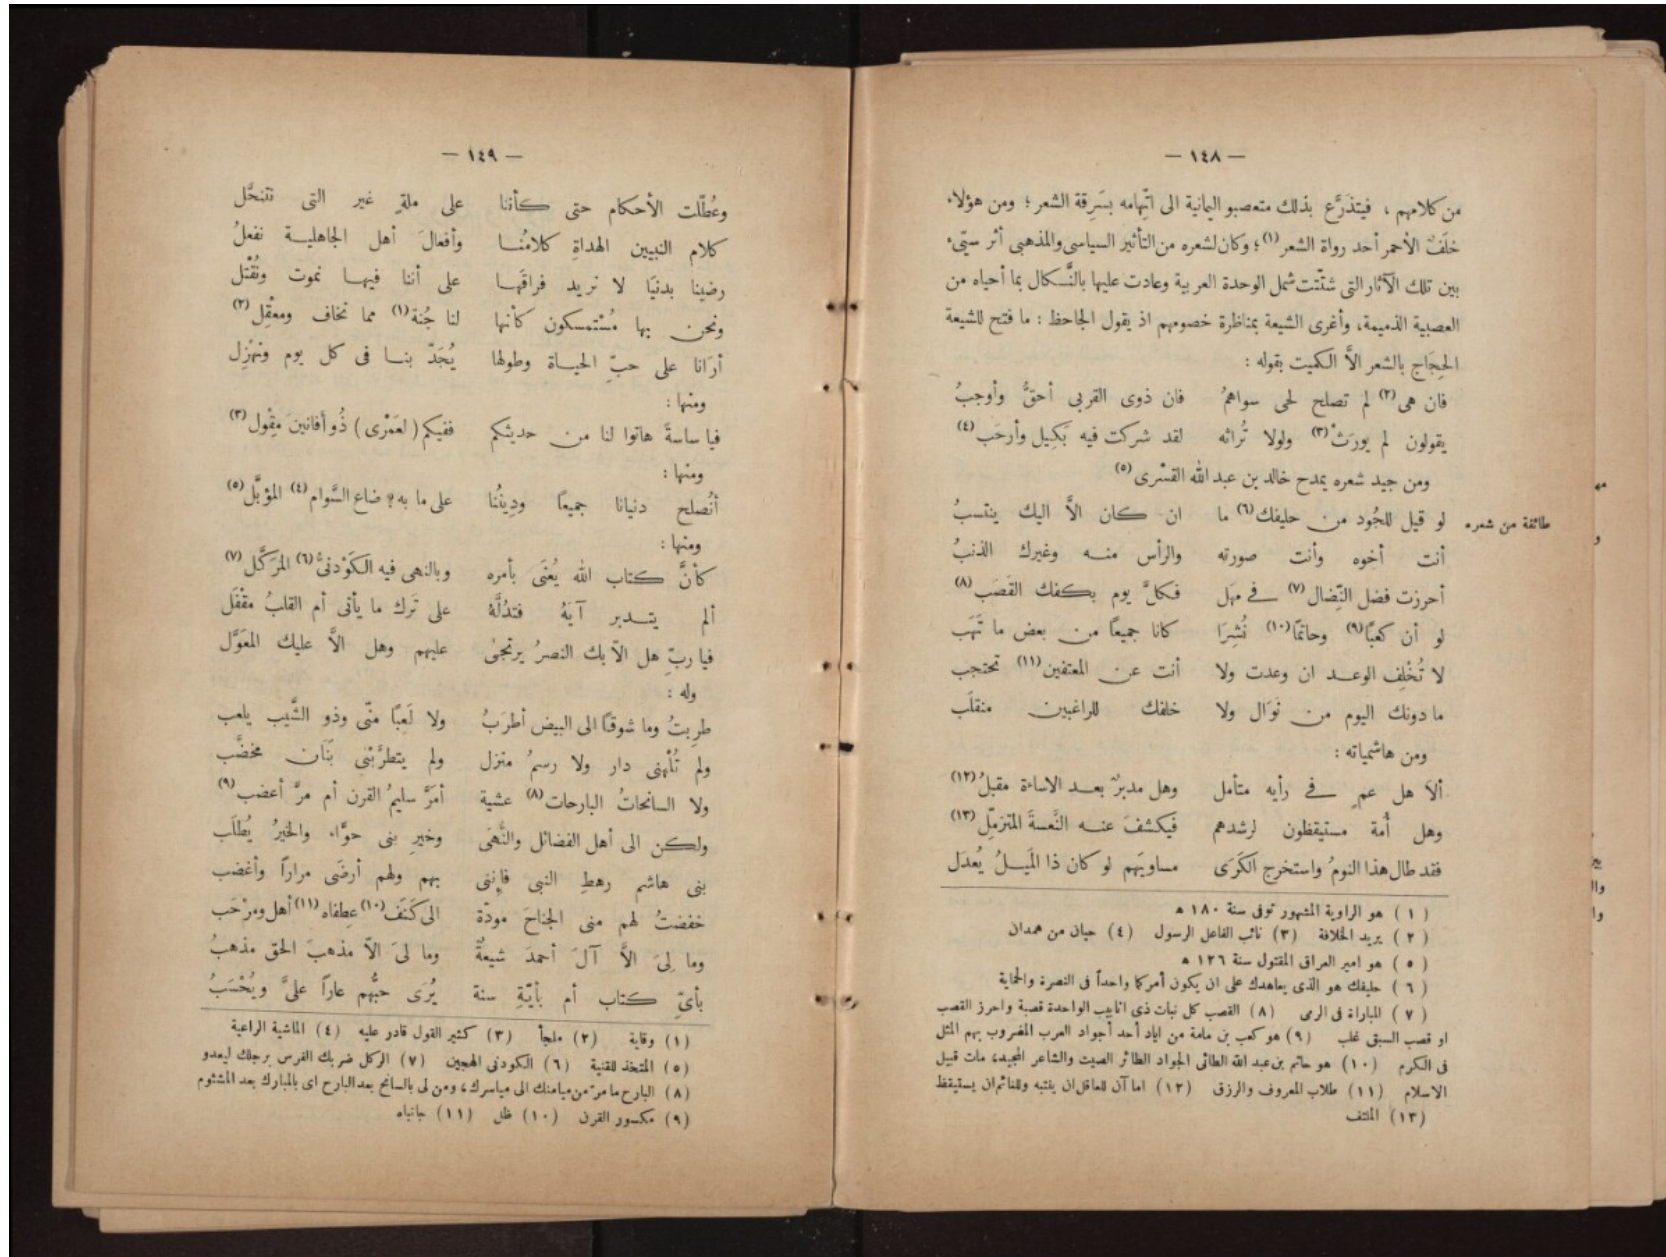 — ١٤٨ —
من كلامهم ، فيتذرَّع بذلك متعصبو اليمانية الى اتّهامه بسَرِقة الشعر ؛ ومن هؤلاء
خلَفٌ الأحمر أحد رواة الشعر (١) ؛ وكان لشعره من التأثير السياسى والمذهبى أثر سيّىء
بين تلك الآثار التى شتّتت شمل الوحدة العربية وعادت عليها بالنَّكال بما أحياه من
العصبية الذميمة، وأغرى الشيعة بمناظرة خصومهم اذ يقول الجاحظ : ما فتح للشيعة
الحِجَاج بالشعر الاَّ الكميت بقوله :
فان هى (٢) لم تصلح لحى سواهمُ فان ذوى القربى أحقُّ وأوجبُ
يقولون لم يورَثْ (٣) ولولا تُراثه لقد شركت فيه بَكِيل وأرحَب (٤)
ومن جيد شعره يمدح خالد بن عبد الله القسْرى (٥)
طائفة من شعره
لو قيل للجُود من حليفك (٦) ما ان كان الاَّ اليك ينتسبُ
أنت أخوه وأنت صورته والرأس منه وغيرك الذنبُ
أحرزت فضل النِّضال (٧) فى مهَل فكلَّ يوم بكفك القَصَب (٨)
لو أن كعبًا (٩) وحاتمًا (١٠) نُشِرَا كانا جميعًا من بعض ما تَهَب
لا تُخْلِف الوعد ان وعدت ولا أنت عن المعتفين (١١) تحتجب
ما دونك اليوم من نَوَال ولا خلفك للراغبين منقلَب
ومن هاشمياته :
ألاَ هل عمٍ فى رأيه متأمل وهل مدبرٌ بعد الاساءة مقبلُ (١٢)
وهل أُمة مستيقظون لرشدهم فَيكشفَ عنه النَّعسةَ المتزمِّل (١٣)
فقد طال هذا النومُ واستخرج الكَرَى مساويَهم لو كان ذا المَيلُ يُعدَل
(١) هو الراوية المشهور توفى سنة ١٨٠ ه
(٢) يريد الخلافة (٣) نائب الفاعل الرسول (٤) حيان من همدان
(٥) هو امير العراق المقتول سنة ١٢٦ ه
(٦) حليفك هو الذى يعاهدك على ان يكون أمركما واحداً فى النصرة والحماية
(٧) المباراة فى الرمى (٨) القصب كل نبات ذى انابيب الواحدة قصبة واحرز القصب
او قصب السبق غلب (٩) هو كعب بن مامة من اياد أحد أجواد العرب المضروب بهم المثل
فى الكرم (١٠) هو حاتم بن عبد الله الطائى الجواد الطائر الصيت والشاعر المجيد، مات قبيل
الاسلام (١١) طلاب المعروف والرزق (١٢) اما آن للعاقل ان ينتبه وللنائم ان يستيقظ
(١٣) الملتف
— ١٤٩ —
وعُطّلت الأحكام حتى كأننا على ملةٍ غير التى نتنحَّل
كلام النبيين الهداةِ كلامُنا وأفعالَ أهل الجاهلية نفعلُ
رضينا بدنيَا لا نريد فراقَها على أننا فيها نموت ونُقْتل
ونحن بها مُسْتمسكون كأنها لنا جُنة (١) مما نخاف ومعْقِل (٢)
أرَانا على حبِّ الحياة وطولها يُجَدّ بنا فى كل يوم ونهْزِل
ومنها :
فيا ساسةً هاتوا لنا من حديثكم ففيكم ( لعَمْرى ) ذُو أفانينَ مِقْول (٣)
ومنها :
أنُصلح دنيانا جميعًا ودِينُنا على ما به ؟ ضاع السَّوام (٤) المؤبَّل (٥)
ومنها :
كأنَّ كتاب الله يُعْنَى بأمره وبالنهى فيه الكَوْدنىُّ (٦) المرَكَّل (٧)
ألم يتدبر آيَةً فتدُلَّهُ على تَرك ما يأتى أم القلبُ مقْفَل
فيا ربّ هل الاّ بك النصرُ يرتجى عليهم وهل الاَّ عليك المعَوَّل
وله :
طرِبتُ وما شوقًا الى البيض أطرَبُ ولا لَعِبًا منّى وذو الشَّيب يلعب
ولم تُلْهنى دار ولا رسمُ منزل ولم يتطرَّبْنى بَنَان مخضَّب
ولا السانحاتُ البارحات (٨) عشية أمَرَّ سليمُ القرن أم مرَّ أعضب (٩)
ولكن الى أهل الفضائل والنُّهَى وخيرِ بنى حوَّاء والخيرُ يُطلَب
بنى هاشم رهطِ النبى فإننى بهم ولهم أرضَى مراراً وأغضب
خفضتُ لهم منى الجناحَ مودّة الى كَنَف (١٠) عِطفاه (١١) أهل ومرْحَب
وما لِىَ الاَّ آلَ أحمدَ شيعةٌ وما لىَ الاّ مذهبَ الحق مذهبُ
بأىّ كتاب أم بأيّةِ سنة يُرَى حبُّهم عاراً علىَّ ويُحْسَبُ
(١) وقاية (٢) ملجأ (٣) كثير القول قادر عليه (٤) الماشية الراعية
(٥) المتخذ للقنية (٦) الكودنى الهجين (٧) الركل ضربك الفرس برجلك ليعدو
(٨) البارح ما مرّ من ميامنك الى مياسرك، ومن لى بالسانح بعد البارح اى بالمبارك بعد المشئوم
(٩) مكسور القرن (١٠) ظل (١١) جانباه